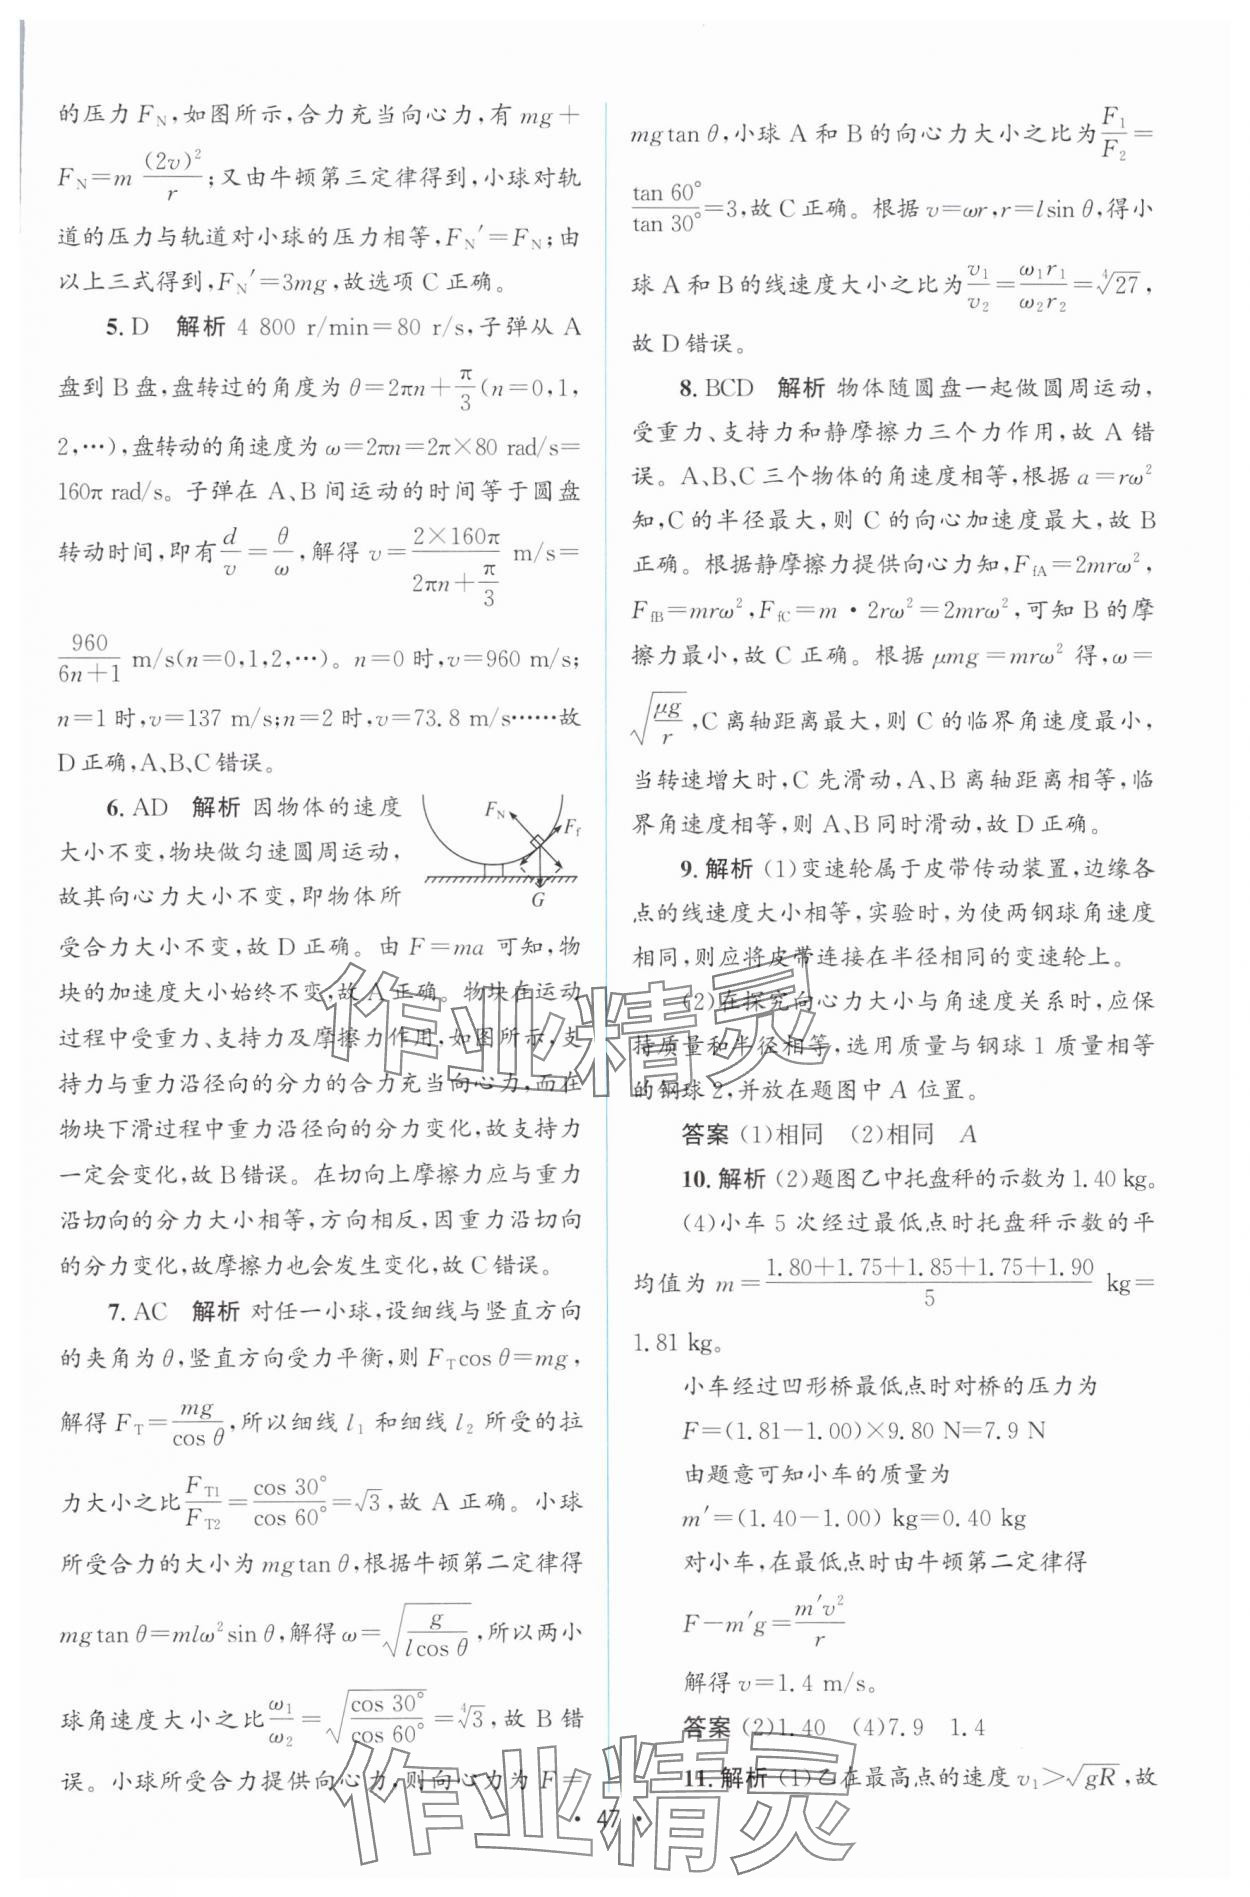 的压力 F_N,如图所示,合力充当向心力,有 mg+
F_N=m (2v)²/r;又由牛顿第三定律得到,小球对轨
道的压力与轨道对小球的压力相等,F_N′=F_N;由
以上三式得到,F_N′=3mg,故选项 C 正确。
5. D 解析 4 800 r/min=80 r/s,子弹从 A
盘到 B 盘,盘转过的角度为 θ=2πn+π/3(n=0,1,
2,…),盘转动的角速度为 ω=2πn=2π×80 rad/s=
160π rad/s。子弹在 A、B 间运动的时间等于圆盘
转动时间,即有 d/v=θ/ω,解得 v=2×160π/(2πn+π/3) m/s=
960/(6n+1) m/s(n=0,1,2,…)。n=0 时,v=960 m/s;
n=1 时,v=137 m/s;n=2 时,v=73.8 m/s……故
D 正确,A、B、C 错误。
6. AD 解析 因物体的速度
大小不变,物块做匀速圆周运动,
故其向心力大小不变,即物体所
F_N
F_f
G
受合力大小不变,故 D 正确。由 F=ma 可知,物
块的加速度大小始终不变,故 A 正确。物块在运动
过程中受重力、支持力及摩擦力作用,如图所示,支
持力与重力沿径向的分力的合力充当向心力,而在
物块下滑过程中重力沿径向的分力变化,故支持力
一定会变化,故 B 错误。在切向上摩擦力应与重力
沿切向的分力大小相等,方向相反,因重力沿切向
的分力变化,故摩擦力也会发生变化,故 C 错误。
7. AC 解析 对任一小球,设细线与竖直方向
的夹角为 θ,竖直方向受力平衡,则 F_T cos θ=mg,
解得 F_T=mg/cos θ,所以细线 l₁ 和细线 l₂ 所受的拉
力大小之比 F_T1/F_T2=cos 30°/cos 60°=√3,故 A 正确。小球
所受合力的大小为 mgtan θ,根据牛顿第二定律得
mgtan θ=mlω²sin θ,解得 ω=√(g/(lcos θ)),所以两小
球角速度大小之比 ω₁/ω₂=√(cos 30°/cos 60°)=⁴√3,故 B 错
误。小球所受合力提供向心力,则向心力为 F=
mgtan θ,小球 A 和 B 的向心力大小之比为 F₁/F₂=
tan 60°/tan 30°=3,故 C 正确。根据 v=ωr,r=lsin θ,得小
球 A 和 B 的线速度大小之比为 v₁/v₂=ω₁r₁/ω₂r₂=⁴√27,
故 D 错误。
8. BCD 解析 物体随圆盘一起做圆周运动,
受重力、支持力和静摩擦力三个力作用,故 A 错
误。A、B、C 三个物体的角速度相等,根据 a=rω²
知,C 的半径最大,则 C 的向心加速度最大,故 B
正确。根据静摩擦力提供向心力知,F_fA=2mrω²,
F_fB=mrω²,F_fC=m·2rω²=2mrω²,可知 B 的摩
擦力最小,故 C 正确。根据 μmg=mrω² 得,ω=
√(μg/r),C 离轴距离最大,则 C 的临界角速度最小,
当转速增大时,C 先滑动,A、B 离轴距离相等,临
界角速度相等,则 A、B 同时滑动,故 D 正确。
9. 解析 (1)变速轮属于皮带传动装置,边缘各
点的线速度大小相等,实验时,为使两钢球角速度
相同,则应将皮带连接在半径相同的变速轮上。
(2)在探究向心力大小与角速度关系时,应保
持质量和半径相等,选用质量与钢球 1 质量相等
的钢球 2,并放在题图中 A 位置。
答案 (1)相同 (2)相同 A
10. 解析 (2)题图乙中托盘秤的示数为 1.40 kg。
(4)小车 5 次经过最低点时托盘秤示数的平
均值为 m=(1.80+1.75+1.85+1.75+1.90)/5 kg=
1.81 kg。
小车经过凹形桥最低点时对桥的压力为
F=(1.81-1.00)×9.80 N=7.9 N
由题意可知小车的质量为
m′=(1.40-1.00) kg=0.40 kg
对小车,在最低点时由牛顿第二定律得
F-m′g=m′v²/r
解得 v=1.4 m/s。
答案 (2)1.40 (4)7.9 1.4
11. 解析 (1)乙在最高点的速度 v₁>√gR,故
· 47 ·
作业精灵
作业精灵